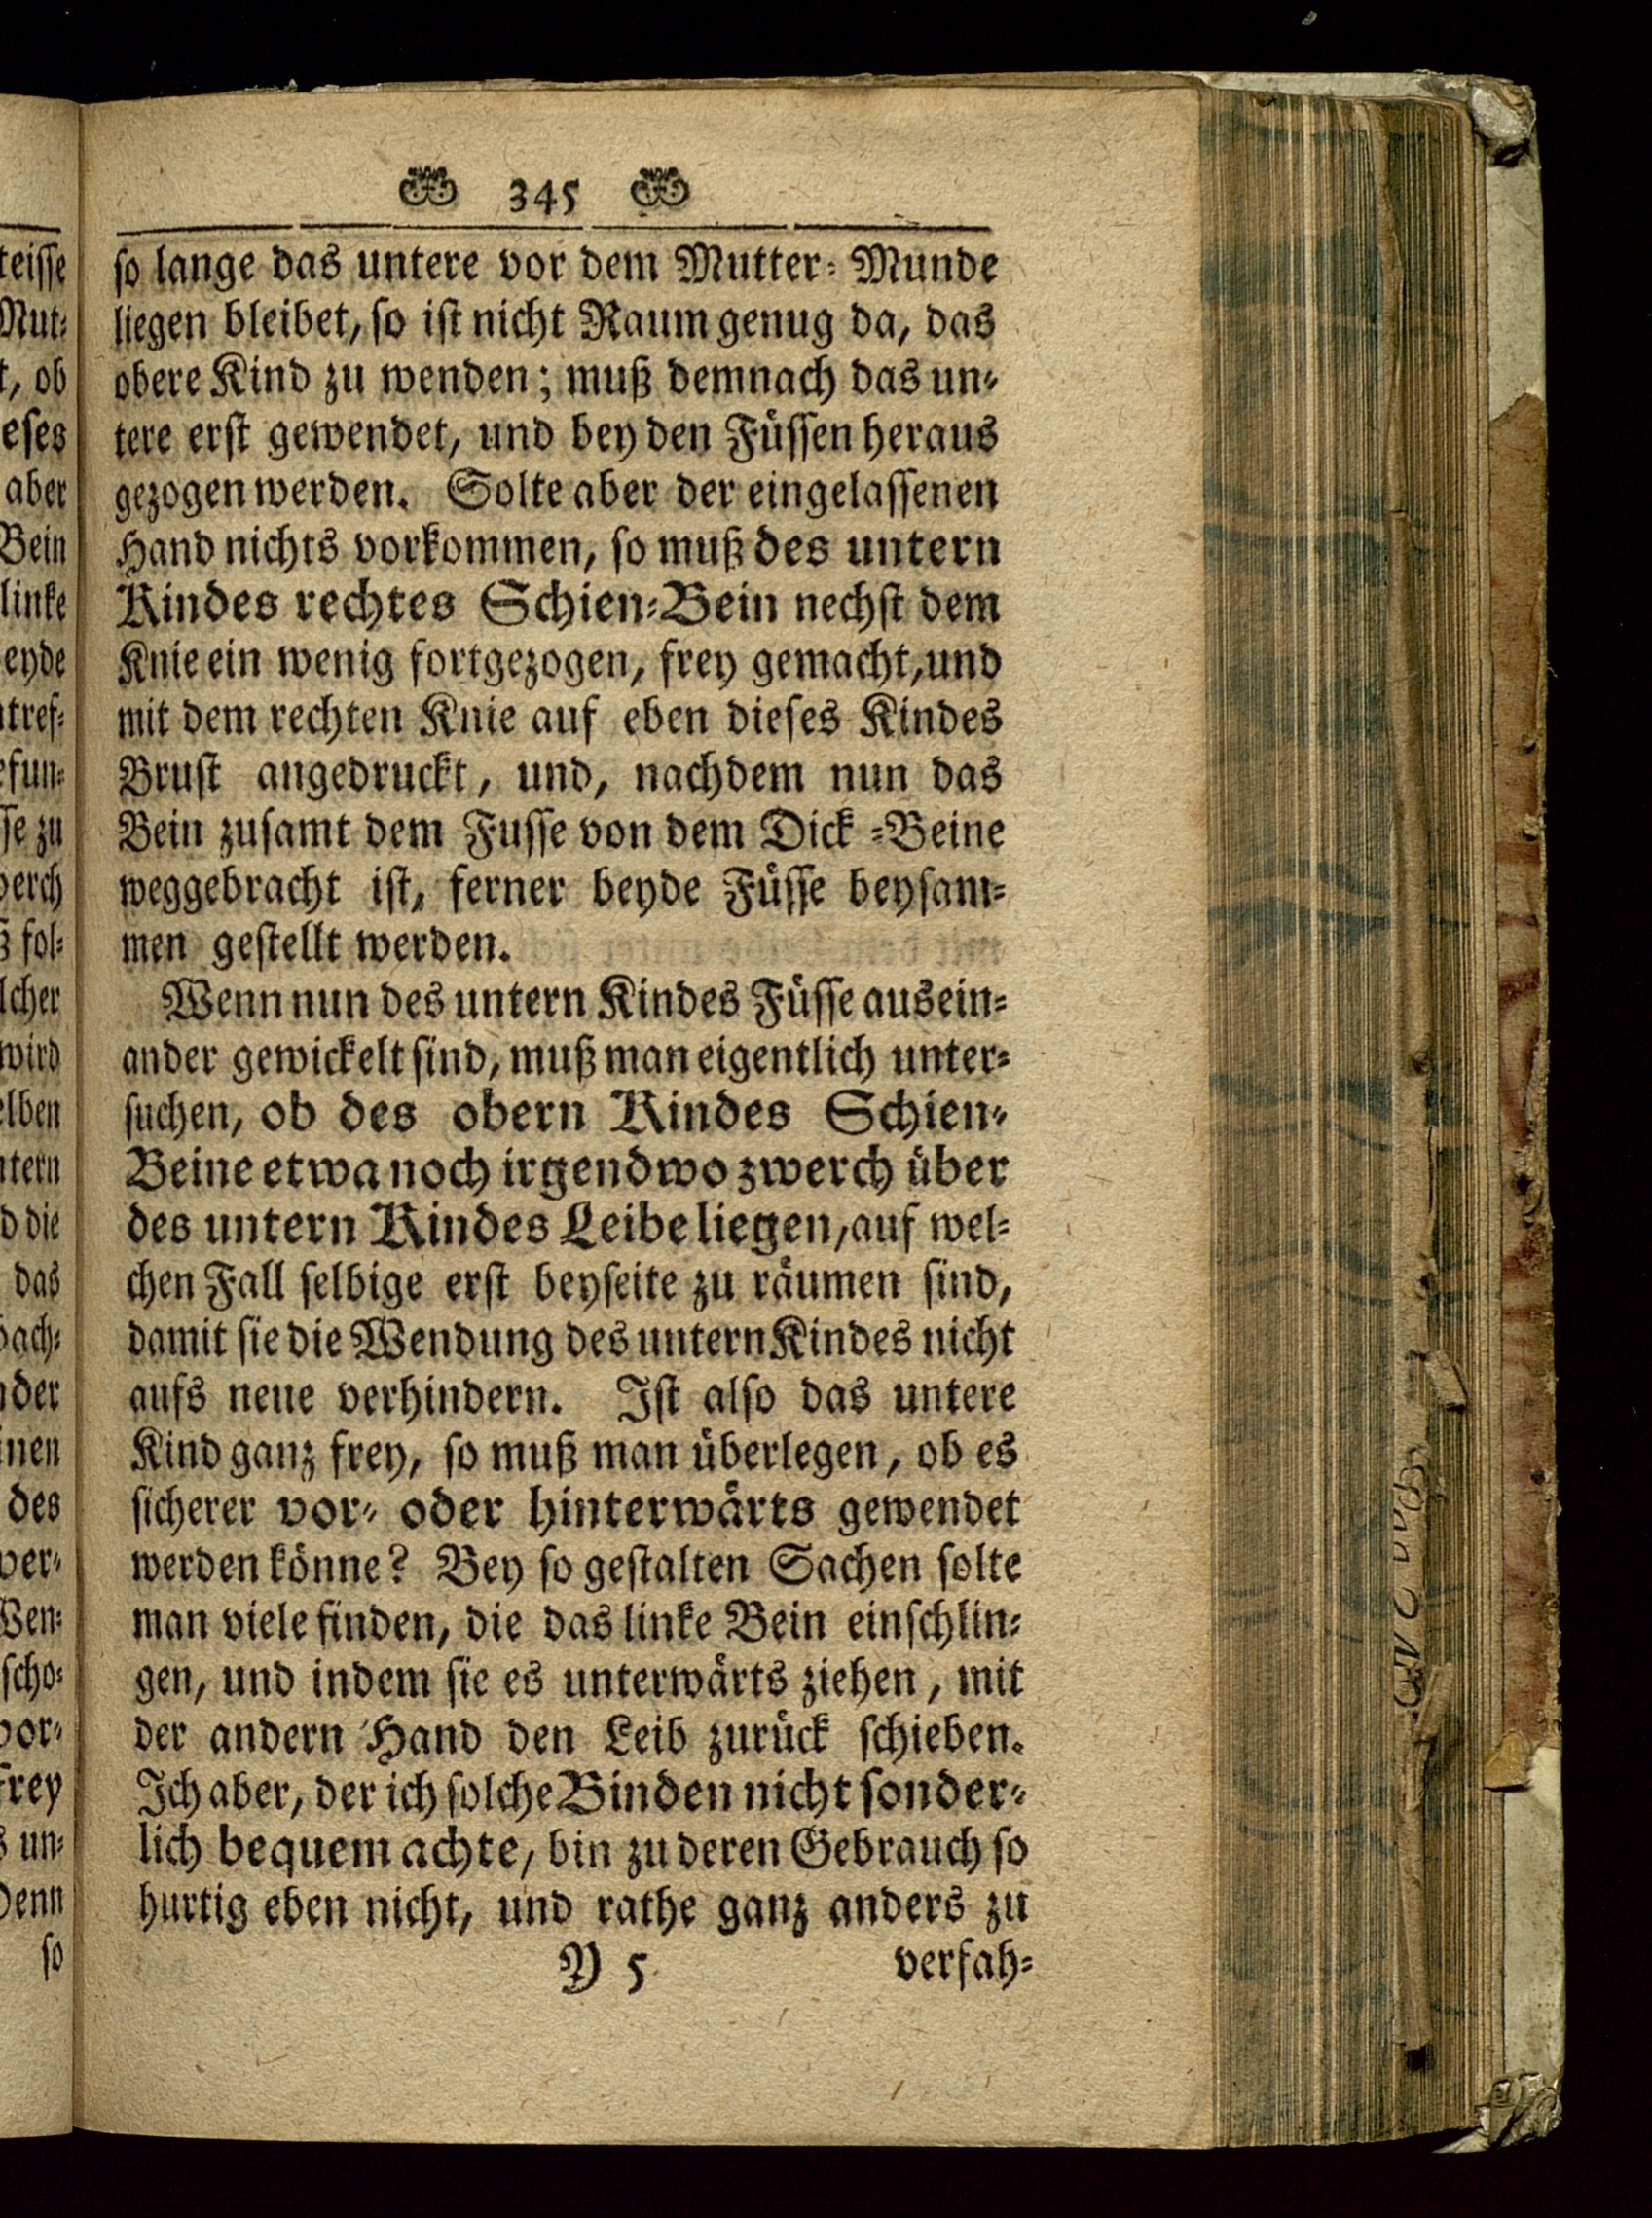 345
so lange das untere vor dem Mutter-Munde
liegen bleibet, so ist nicht Raum genug da, das
obere Kind zu wenden; muß demnach das un-
tere erst gewendet, und bey den Füssen heraus
gezogen werden. Solte aber der eingelassenen
Hand nichts vorkommen, so muß des untern
Kindes rechtes Schien-Bein nechst dem
Knie ein wenig fortgezogen, frey gemacht, und
mit dem rechten Knie auf eben dieses Kindes
Brust angedruckt, und, nachdem nun das
Bein zusamt dem Fusse von dem Dick-Beine
weggebracht ist, ferner beyde Füsse beysam-
men gestellt werden.
Wenn nun des untern Kindes Füsse ausein-
ander gewickelt sind, muß man eigentlich unter-
suchen, ob des obern Kindes Schien-
Beine etwa noch irgendwo zwerch über
des untern Kindes Leibe liegen, auf wel-
chen Fall selbige erst beyseite zu räumen sind,
damit sie die Wendung des untern Kindes nicht
aufs neue verhindern. Ist also das untere
Kind ganz frey, so muß man überlegen, ob es
sicherer vor- oder hinterwärts gewendet
werden könne? Bey so gestalten Sachen solte
man viele finden, die das linke Bein einschlin-
gen, und indem sie es unterwärts ziehen, mit
der andern Hand den Leib zurück schieben.
Ich aber, der ich solche Binden nicht sonder-
lich bequem achte, bin zu deren Gebrauch so
hurtig eben nicht, und rathe ganz anders zu
Y 5 verfah-